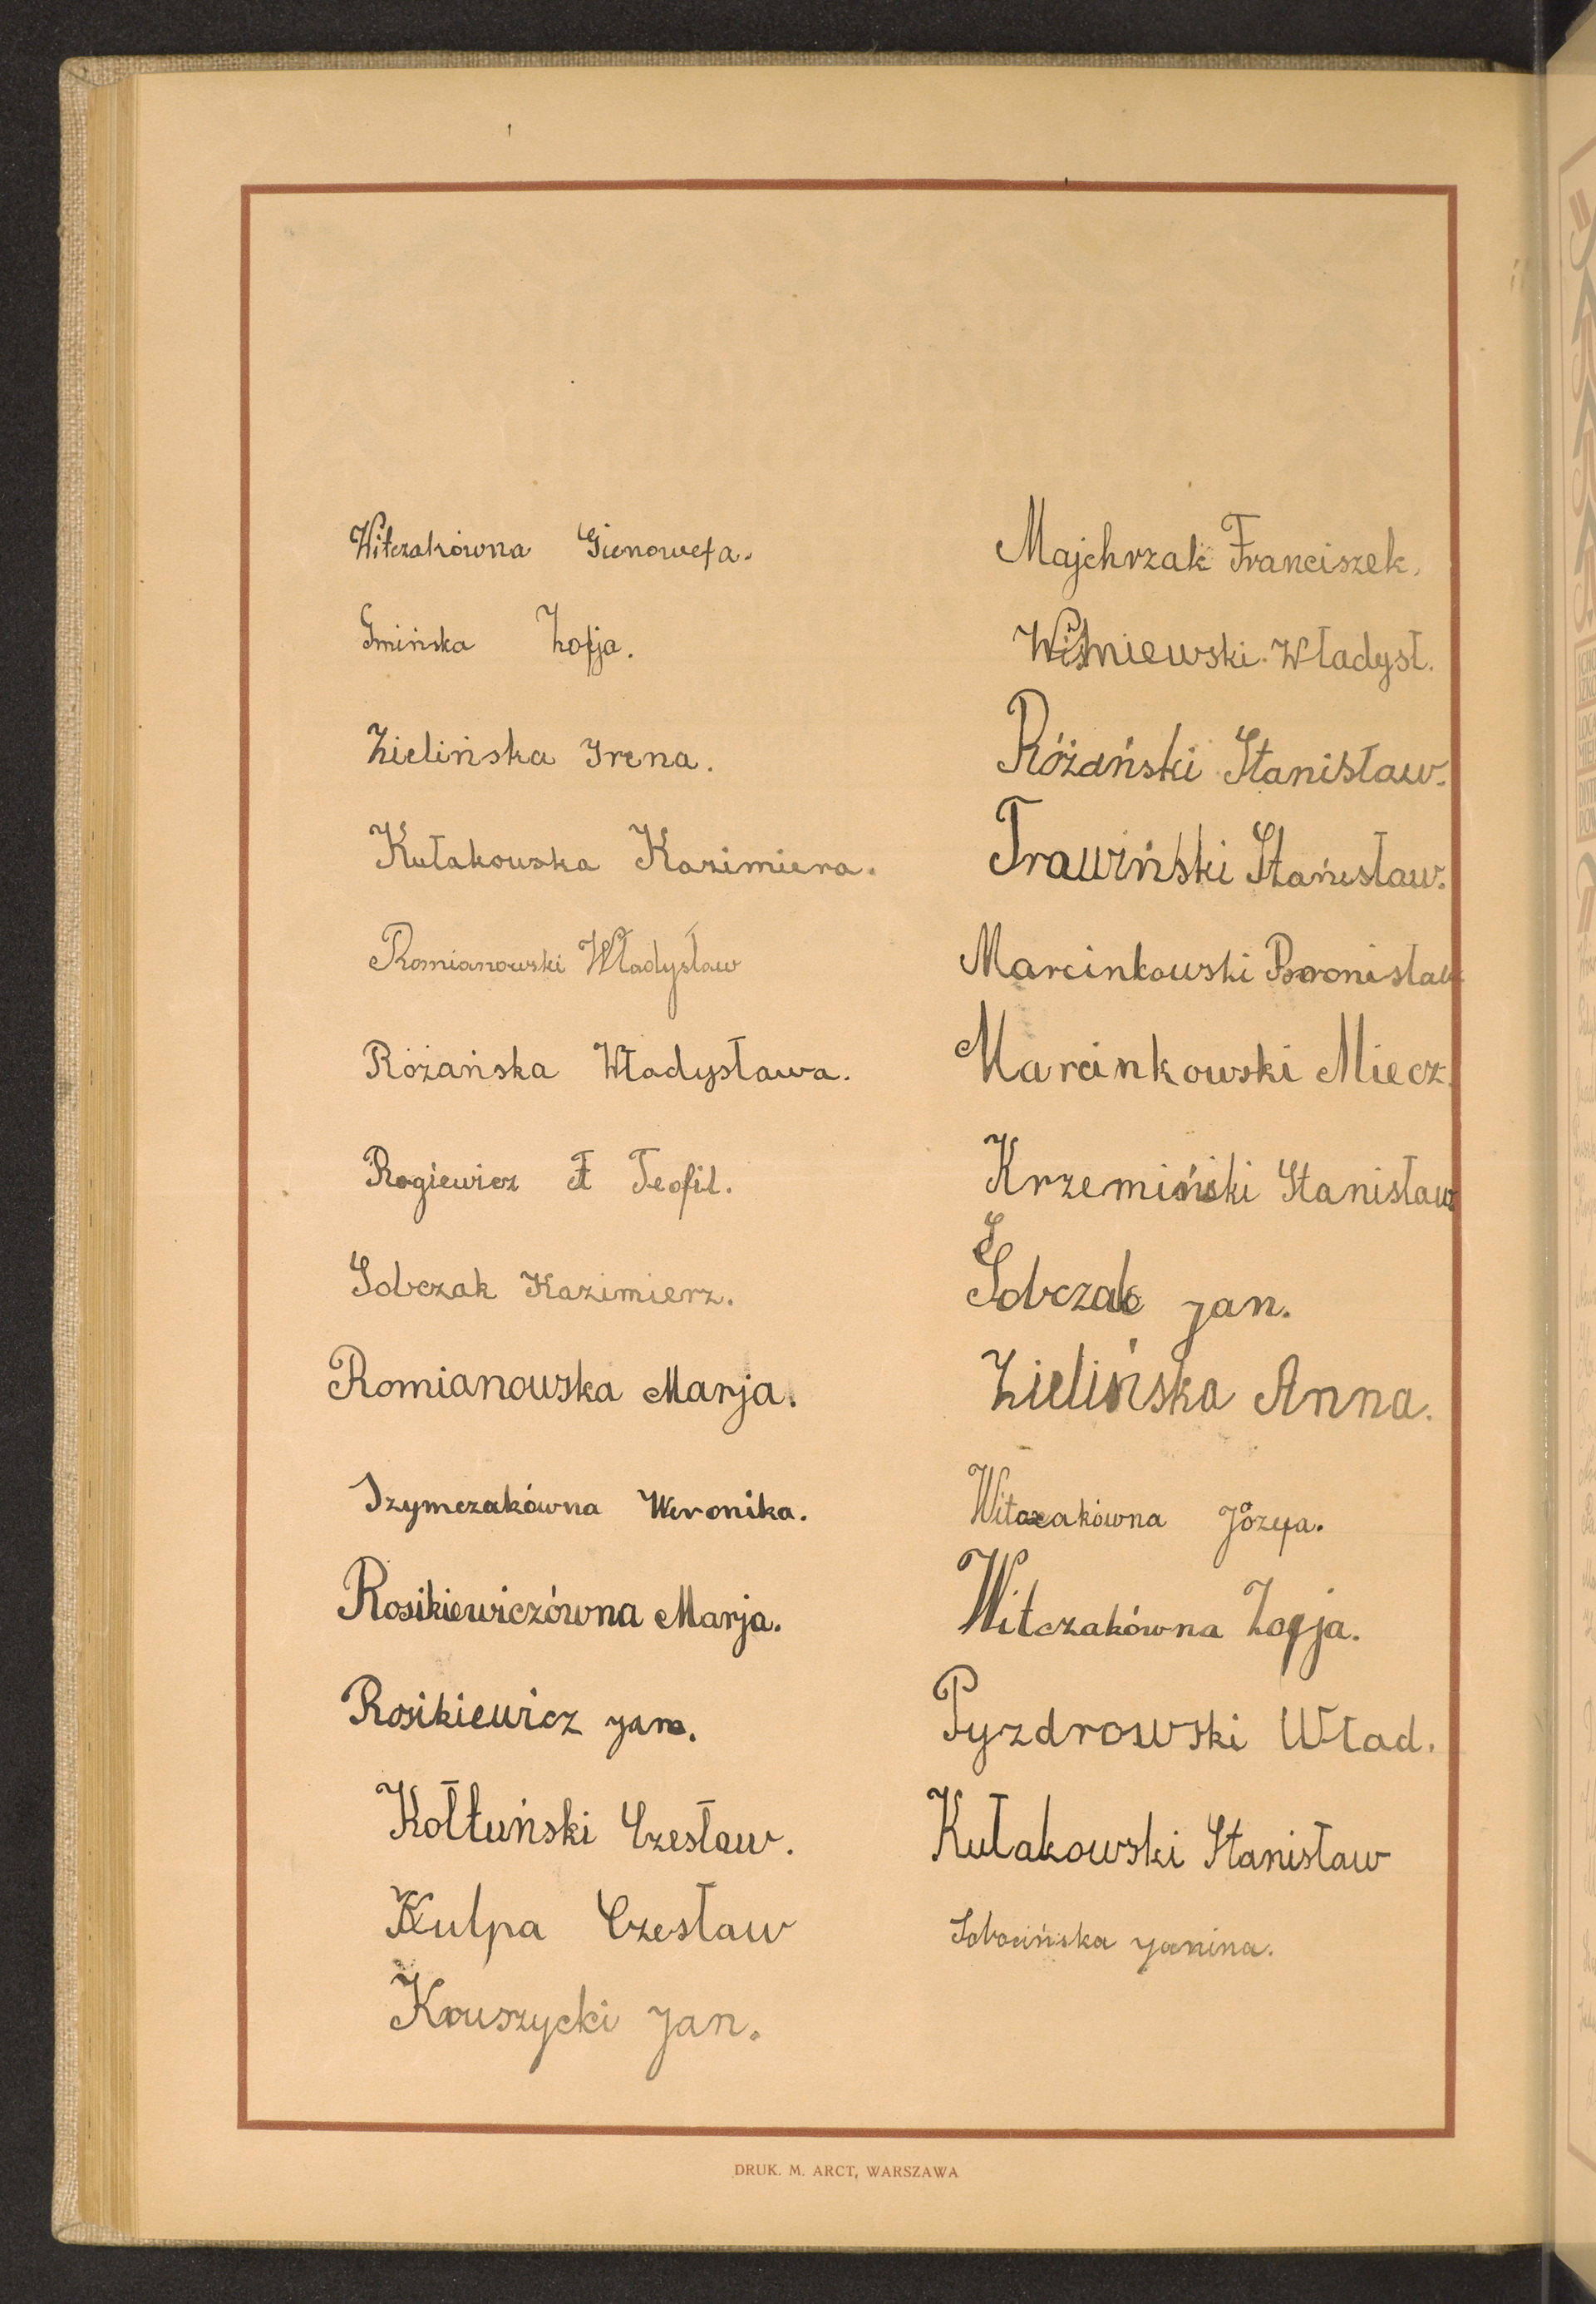 Witczakówna Gienowefa.
Gmińska Zofja.
Zielińska Irena.
Kułakowska Kazimiera.
Romianowski Władysław
Różańska Władysława.
Rogiewicz Teofil.
Sobczak Kazimierz.
Romianowska Marja.
Szymczakówna Weronika.
Rosikiewiczówna Marja.
Rosikiewicz Jan.
Kołtuński Czesław.
Kulpa Czesław
Kruszycki Jan.
Majchrzak Franciszek.
Wiśniewski Władysł.
Różański Stanisław.
Trawiński Stanisław.
Marcinkowski Bronisław
Marcinkowski Miecz.
Krzemiński Stanisław
Sobczak Jan.
Zielińska Anna.
Witczakówna Józefa.
Witczakówna Zofja.
Pyzdrowski Wład.
Kułakowski Stanisław
Sobocińska Janina.
DRUK. M. ARCT, WARSZAWA